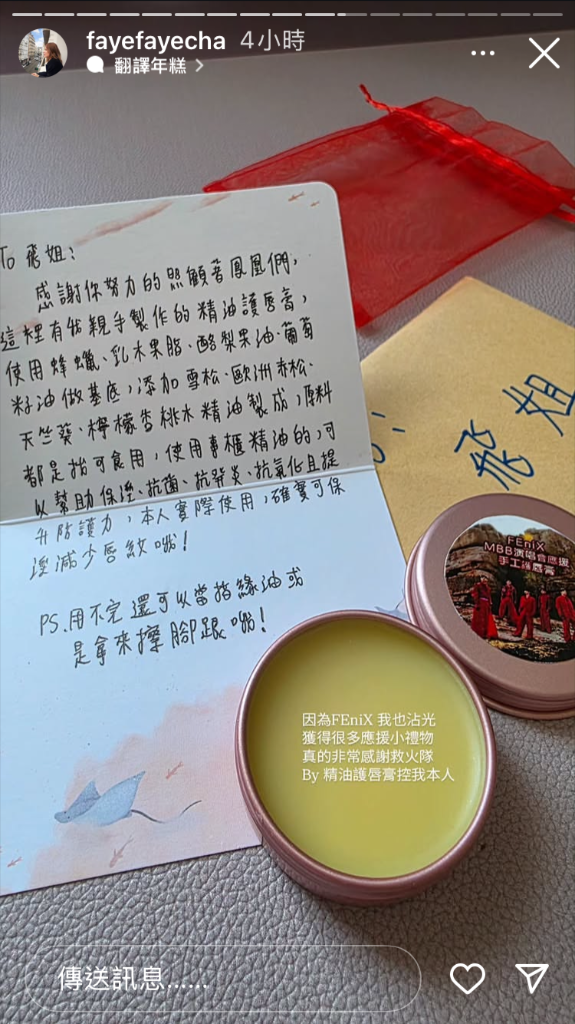 fayefayecha 4小時
翻譯年糕
To 飛姐：
感謝你努力的照顧著鳳凰們，
這裡有我親手製作的精油護唇膏，
使用蜂蠟、乳木果脂、酪梨果油、葡萄
籽油做基底，添加雪松、歐洲赤松、
天竺葵、檸檬香桃木精油製成，原料
都是指可食用，使用專櫃精油的，可
以幫助保溼、抗菌、抗發炎、抗氧化且提
升防護力，本人實際使用，確實可保
溼減少唇紋哦！
PS.用不完還可以當指緣油或
是拿來擦腳跟喲！
飛姐
FEniX
MBB演唱會應援
手工護唇膏
因為FEniX 我也沾光
獲得很多應援小禮物
真的非常感謝救火隊
By 精油護唇膏控我本人
傳送訊息......